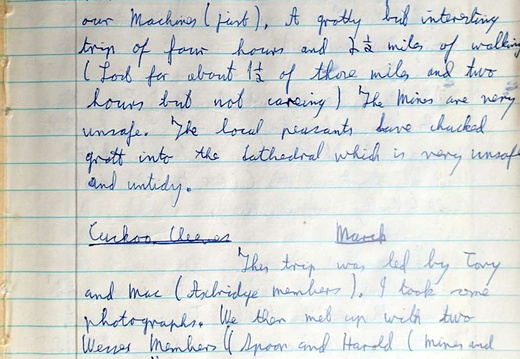 our Machines (just). A grotty but interesting
trip of four hours and 2½ miles of walking
(Lost for about 1½ of those miles and two
hours but not careing) The Mines are very
unsafe. The local peasants have chucked
grott into the Cathedral which is very unsafe
and untidy.
Cuckoo Cleeves March
This trip was led by Tony
and Mac (Axbridge members). I took some
photographs. We then met up with two
Wessex Members (Spoon and Harold (mines and